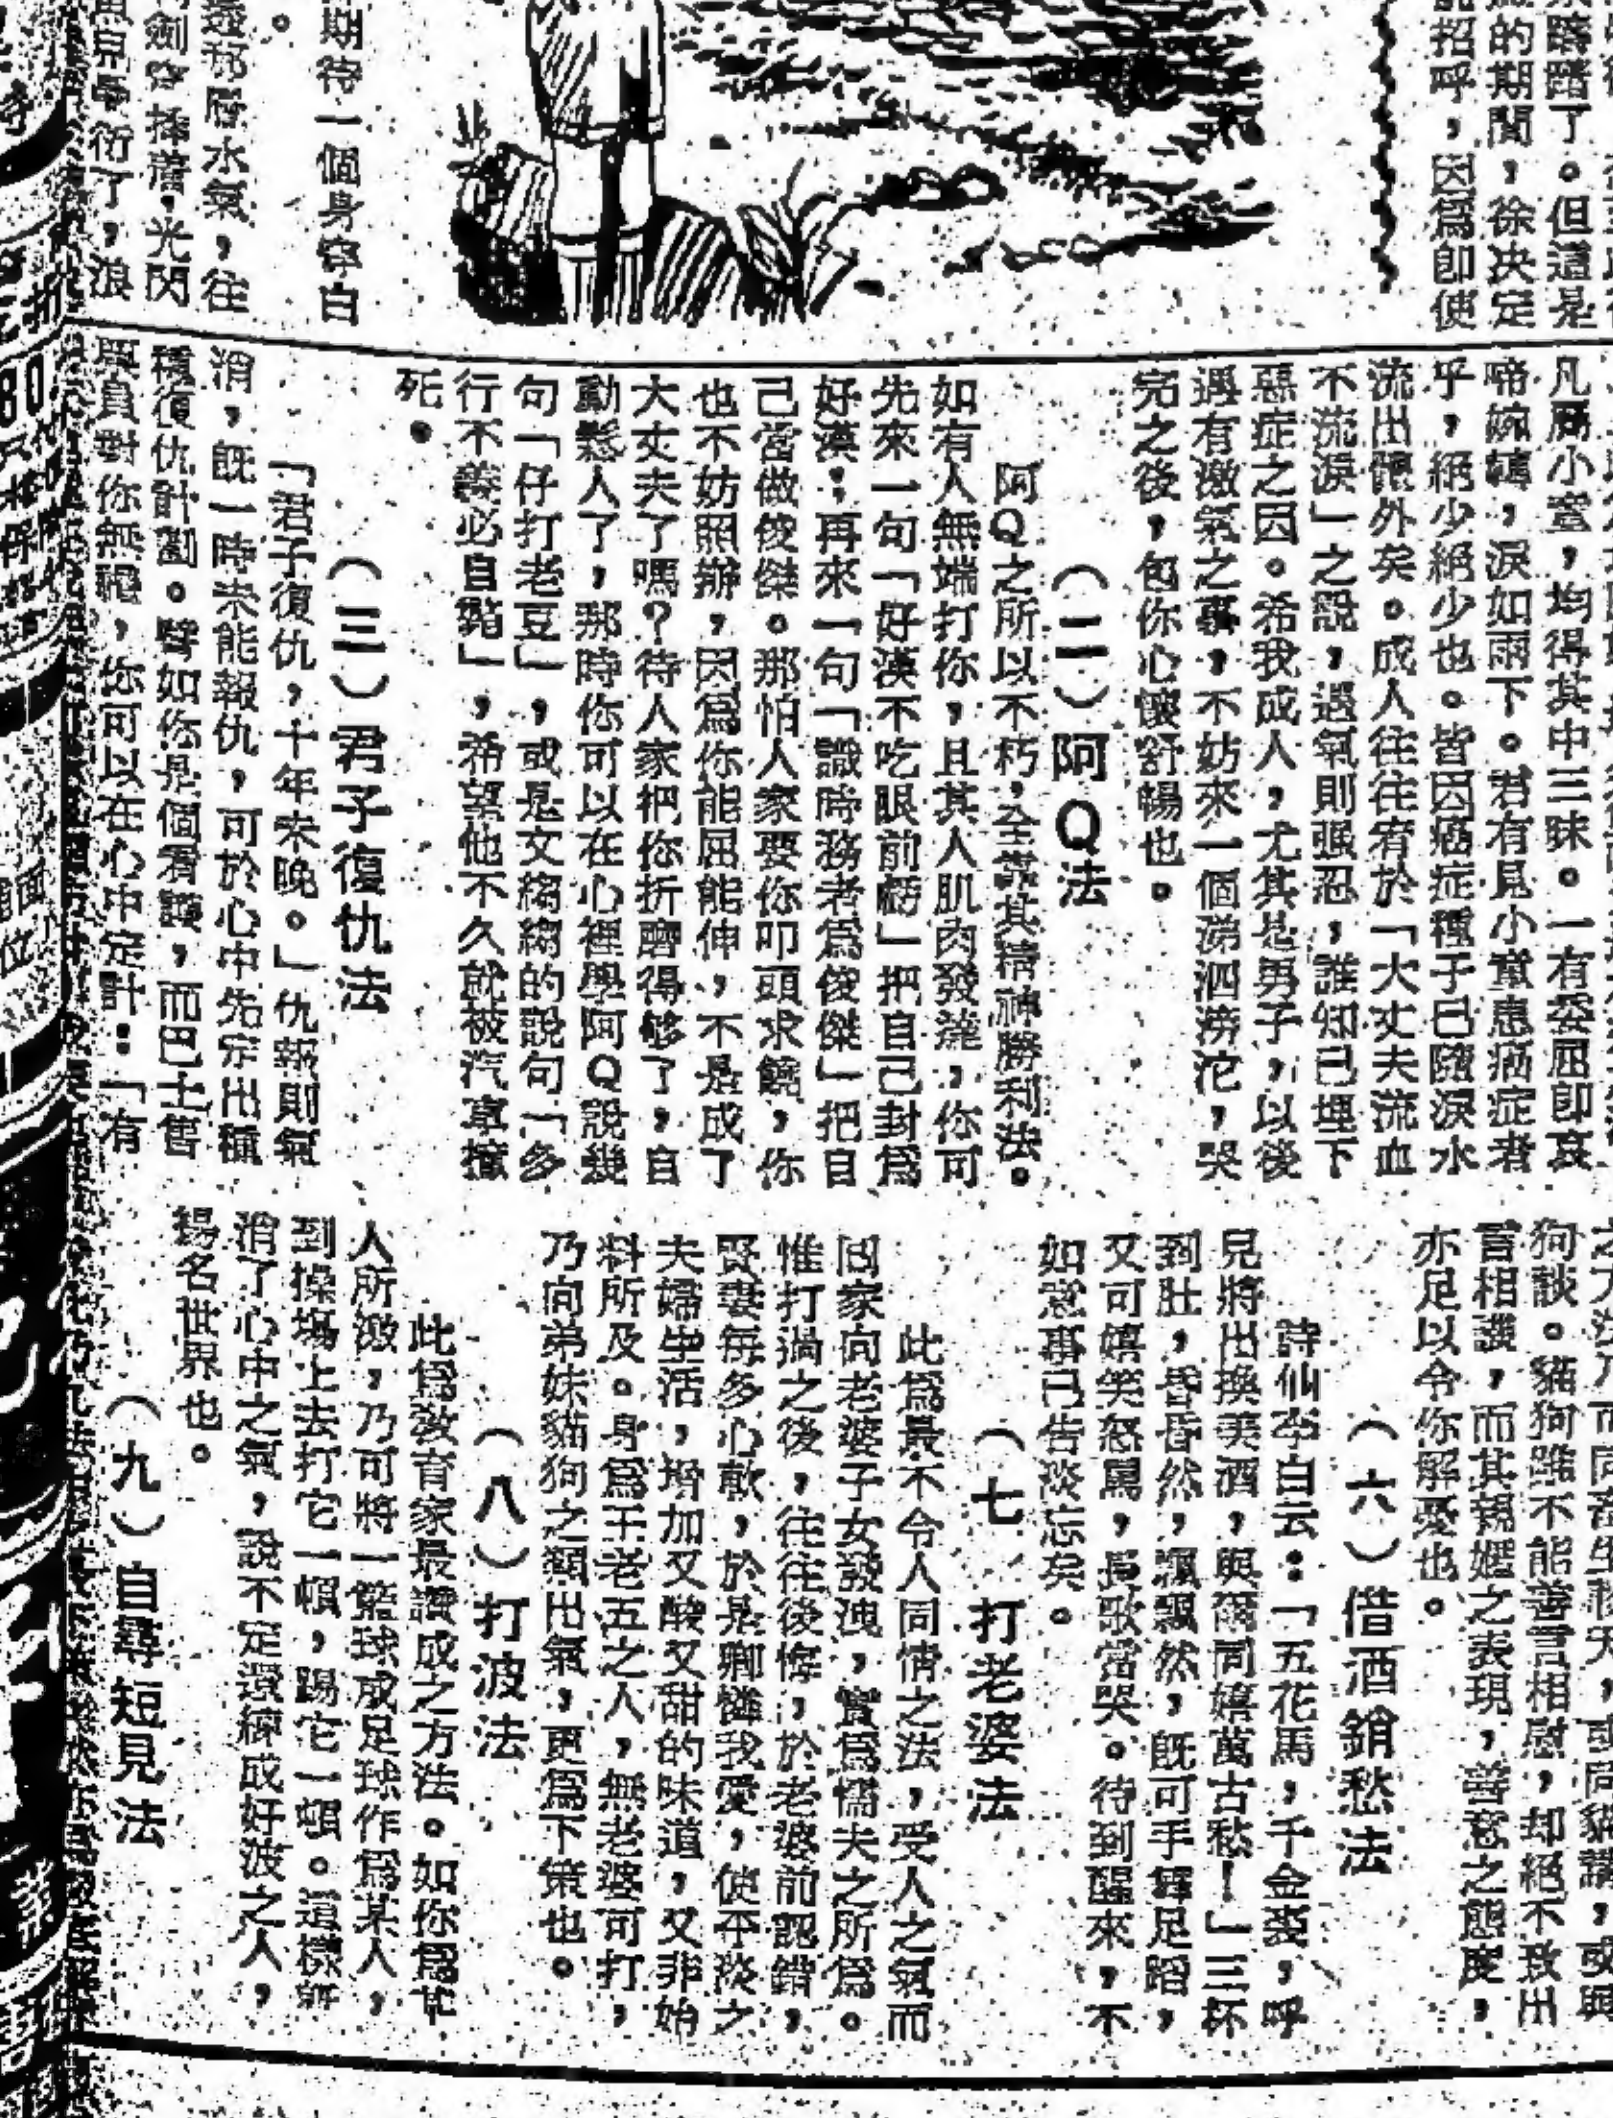 招呼，因爲卽使
的期間，徐決定
躊躇了。但這是
期待一個身穿白
水氣，往
光閃
衍了，浪
凡屬小童，均得其中三昧。一有委屈卽哀
啼婉轉，淚如雨下。君有見小童患癌症者
乎，絕少絕少也。皆因癌症種子已隨淚水
流出體外矣。成人往往宥於「大丈夫流血
不流淚」之說，遇氣則强忍，誰知已埋下
惡症之因。希我成人，尤其是男子，以後
遇有激氣之事，不妨來一個涕泗滂沱，哭
完之後，包你心懷舒暢也。
（二）阿Q法
阿Q之所以不朽，全靠其精神勝利法。
如有人無端打你，且其人肌肉發達，你可
先來一句「好漢不吃眼前虧」把自己封爲
好漢；再來一句「識時務者爲俊傑」把自
己當做俊傑。那怕人家要你叩頭求饒，你
也不妨照辦，因爲你能屈能伸，不是成了
大丈夫了嗎？待人家把你折磨得够了，自
動鬆人了，那時你可以在心裡學阿Q說幾
句「仔打老豆」，或是文縐縐的說句「多
行不義必自斃」，希望他不久就被汽車撞
死。
（三）君子復仇法
「君子復仇，十年未晚。」仇報則氣
消，旣一時未能報仇，可於心中先定出種
種復仇計劃。譬如你是個看護，而巴士售
票員對你無禮，你可以在心中定計：「有
狗談。貓狗雖不能善言相慰，却絕不致出
言相譏，而其親嫟之表現，善意之態度，
亦足以令你解憂也。
（六）借酒銷愁法
詩仙李白云：「五花馬，千金裘，呼
兒將出換美酒，與爾同嬉萬古愁！」三杯
到肚，昏昏然，飄飄然，旣可手舞足蹈，
又可嬉笑怒罵，長歌當哭。待到醒來，不
如意事已告淡忘矣。
（七　打老婆法
此爲最不令人同情之法，受人之氣而
囘家向老婆子女發洩，實爲懦夫之所爲。
惟打過之後，往往後悔，於老婆前認錯，
賢妻每多心軟，於是卿憐我愛，使平淡之
夫婦生活，增加又酸又甜的味道，又非始
料所及。身爲王老五之人，無老婆可打，
乃向弟妹貓狗之類出氣，更爲下策也。
（八）打波法
此爲敎育家最讚成之方法。如你爲某
人所激，乃可將一籃球或足球作爲某人，
到操塲上去打它一頓，踢它一頓。這樣旣
消了心中之氣，說不定還練成好波之人，
揚名世界也。
（九）自尋短見法